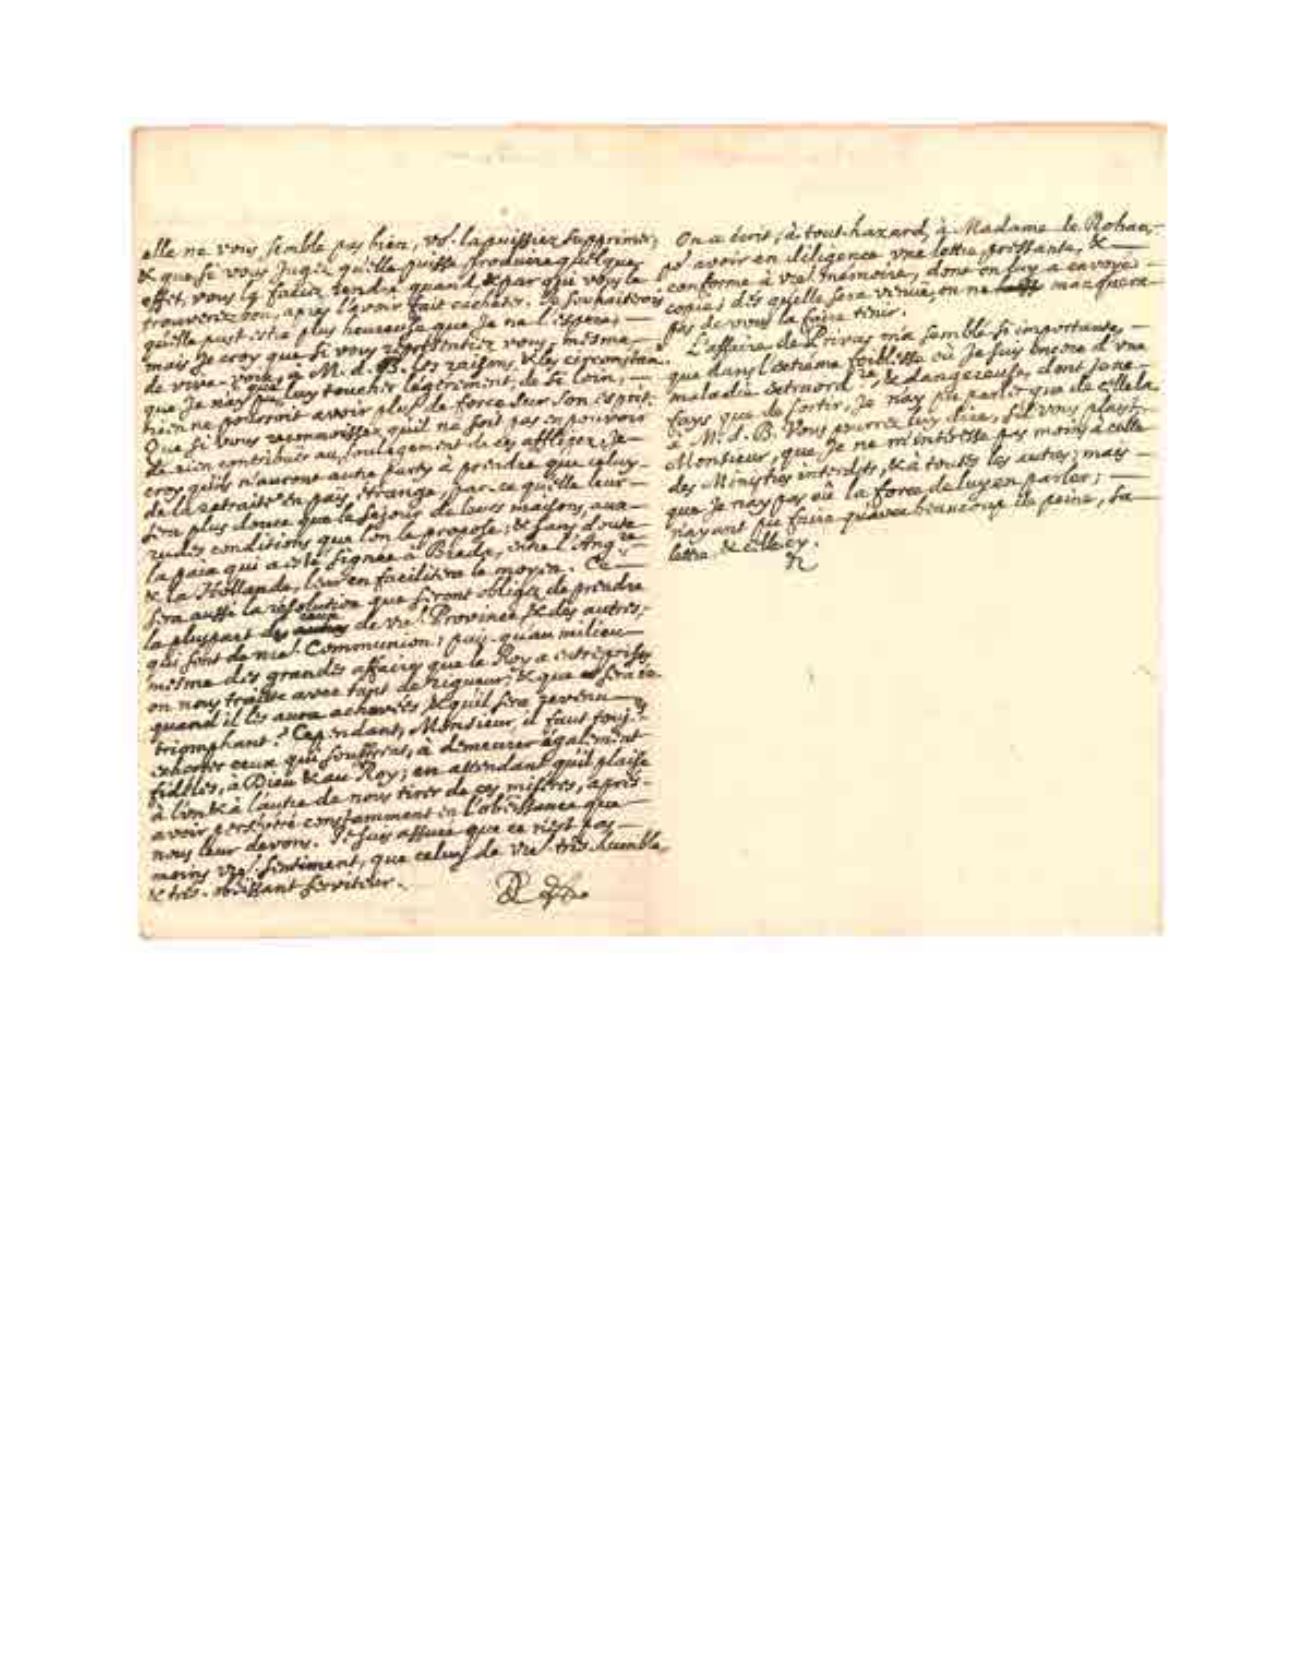 elle ne vous semble pas bien, vs. la puissiez supprimer,
& que si vous Jugez qu'elle puisse produire quelque
effet, vous la faciez rendre quand, & par qui vous le
trouverez bon, apres l'avoir fait cacheter. Je souhaiterois
qu'elle pust estre plus heureuse que Je ne l'espere;
mais Je croy que si vous représentiez vous-mesme
de vive-voix, à M. d. B. les raisons, & les circonstan.
que Je n'ay pu que luy toucher légerement, de si loin,
rien ne pourroit avoir plus de force sur son esprit.
Que si vous reconnoissez qu'il ne soit pas en pouvoir
de rien contribuër au soulagement de ces affligez, Je
croy qu'ils n'auront autre party à prendre que celuy
de la retraite en païs étrange, par-ce qu'elle leur
sera plus douce que le sejour de leurs maisons, aux
rudes conditions que l'on le propose; & sans doute
la paix qui a esté signée à Breda, entre l'Angre
& la Hollande, leur en facilitera le moyen. Ce
sera aussi la résolution que seront obligez de prendre
la pluspart de ceux de vre. Province, & des autres,
qui sont de nre. Communion; puis-qu'au milieu
mesme des grandes affaires que le Roy a entreprises
on nous traitte avec tant de rigueur; & que sera-ce
quand il les aura achevées & qu'il sera revenu
triomphant? Cependant, Monsieur, il faut touj.rs
exhorter ceux qui souffrent, à demeurer également
fidelles, à Dieu & au Roy; en attendant qu'il plaise
à l'un & à l'autre de nous tirer de ces miseres, apres
avoir persévéré constamment en l'obéïssance que
nous leur devons. Je suis assuré que ce n'est pas
moins vre. sentiment, que celuy de vre. très-humble
& très-obéïssant serviteur.
On a écrit, à tout-hazard, à Madame de Rohan,
pr. avoir en diligence une lettre pressante, &
conforme à vre. mémoire, dont on luy a envoyé
copie; dès qu'elle sera venuë, on ne manquera
pas de vous la faire tenir.
L'affaire de Privas m'a semblé si importante,
que dans l'extréme foiblesse où Je suis encore d'une
maladie extraord.re, & dangereuse, dont Je ne
fays que de sortir, Je n'ay pu parler que de celle-la
à M. d. B. Vous pourrez luy dire, s'il vous plaist,
Monsieur, que Je ne m'intéresse pas moins à celle
des Ministres interdits, & à toutes les autres; mais
que Je n'ay pas eû la force de luy en parler;
n'ayant pu faire qu'avec beaucoup de peine, sa
lettre, & celle-cy.